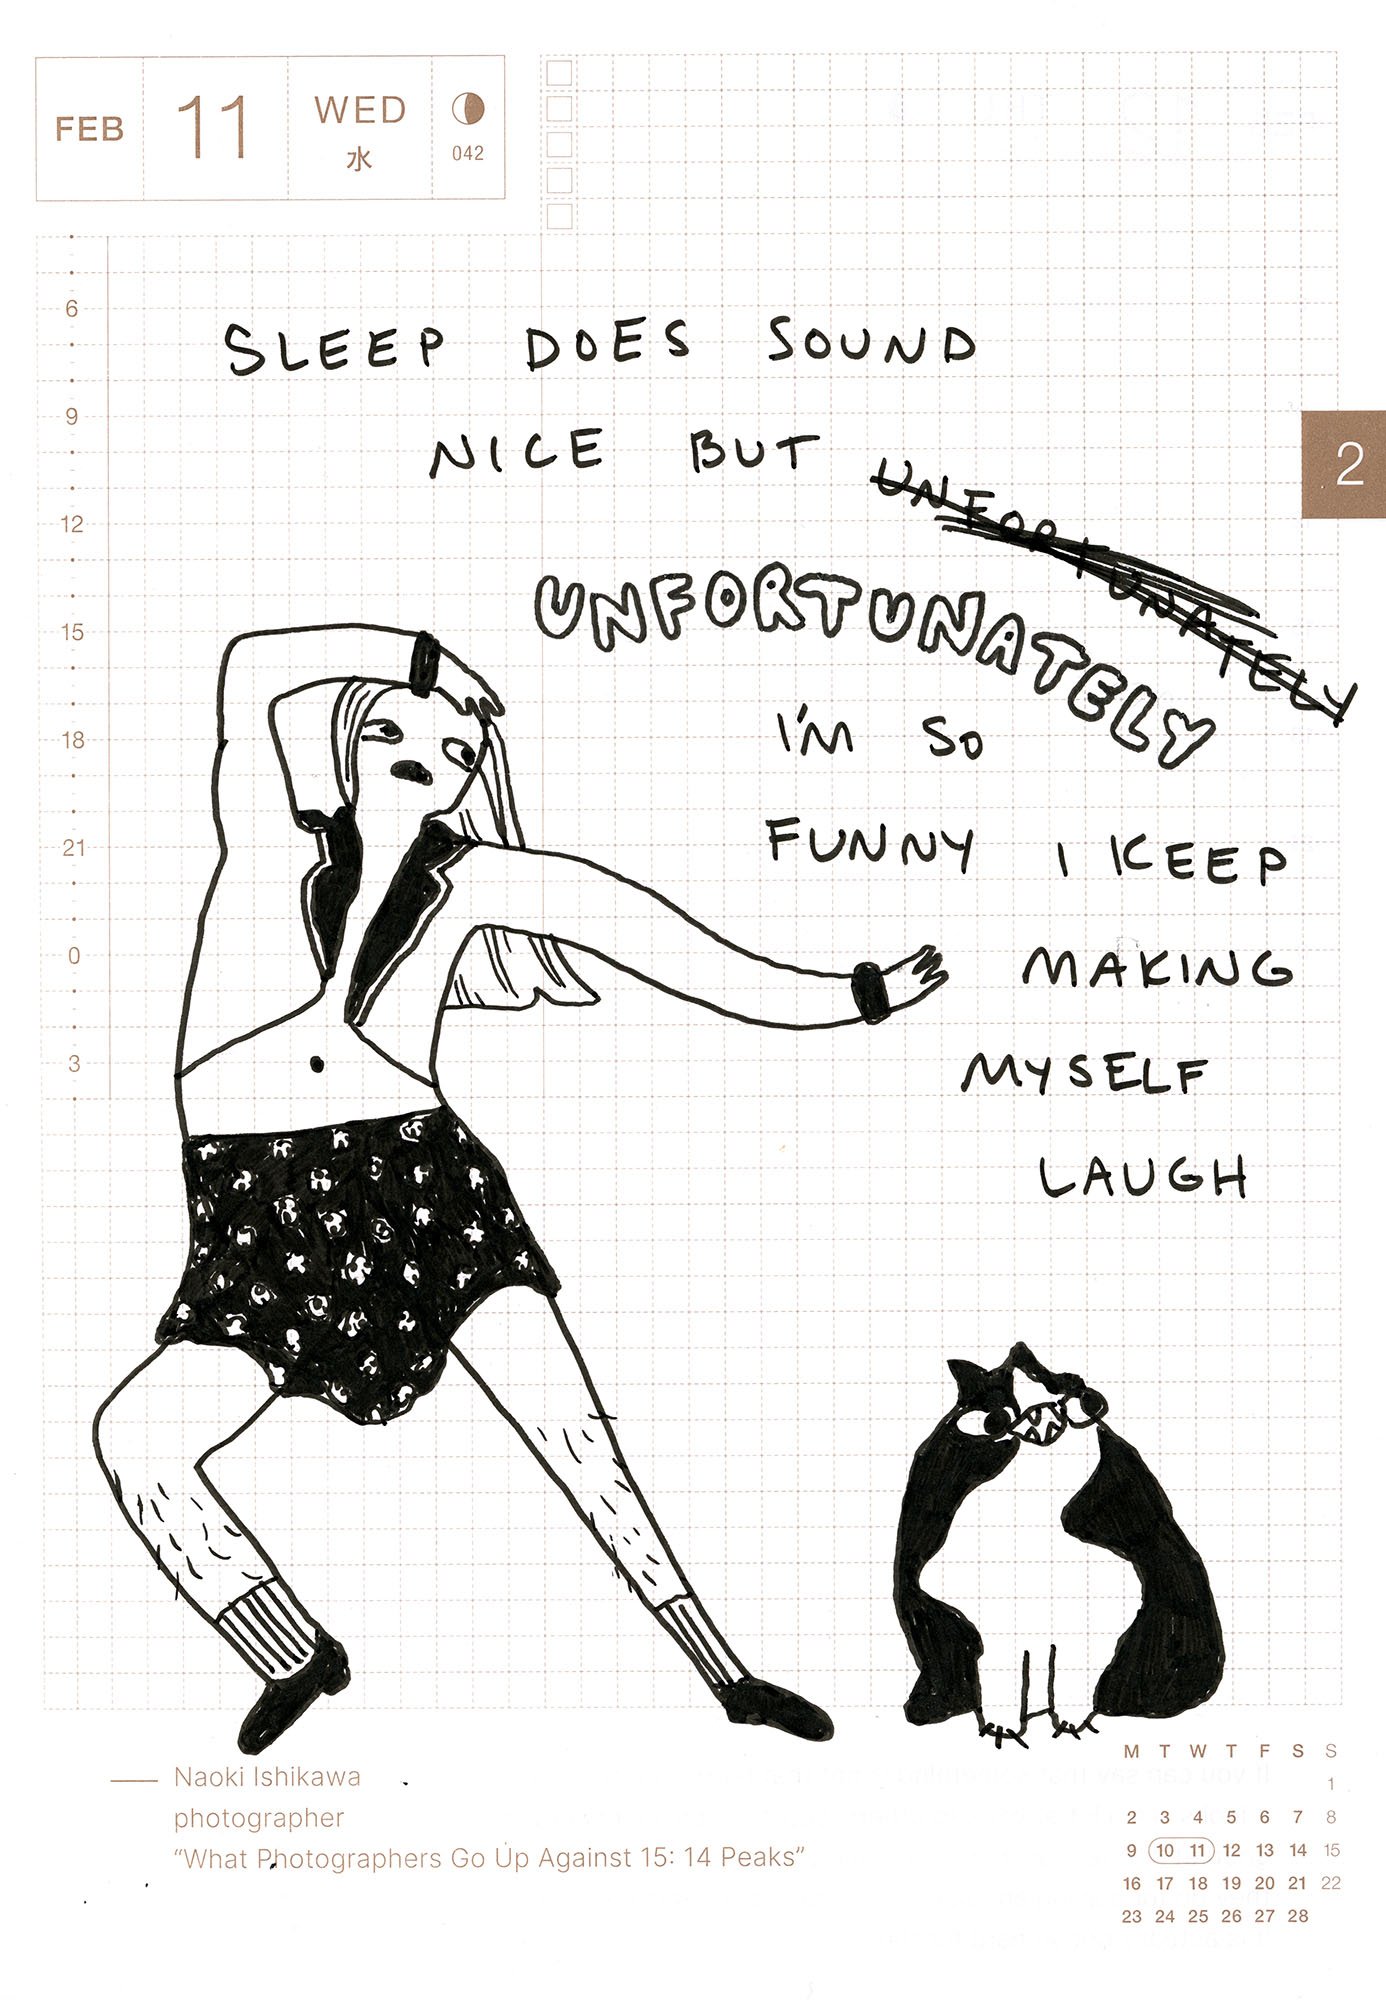 FEB 11 WED 水 042
2
6
9
12
15
18
21
0
3
SLEEP DOES SOUND
NICE BUT UNFORTUNATELY
UNFORTUNATELY
I'M SO
FUNNY I KEEP
MAKING
MYSELF
LAUGH
Naoki Ishikawa
photographer
“What Photographers Go Up Against 15: 14 Peaks”
M T W T F S S
1
2 3 4 5 6 7 8
9 10 11 12 13 14 15
16 17 18 19 20 21 22
23 24 25 26 27 28